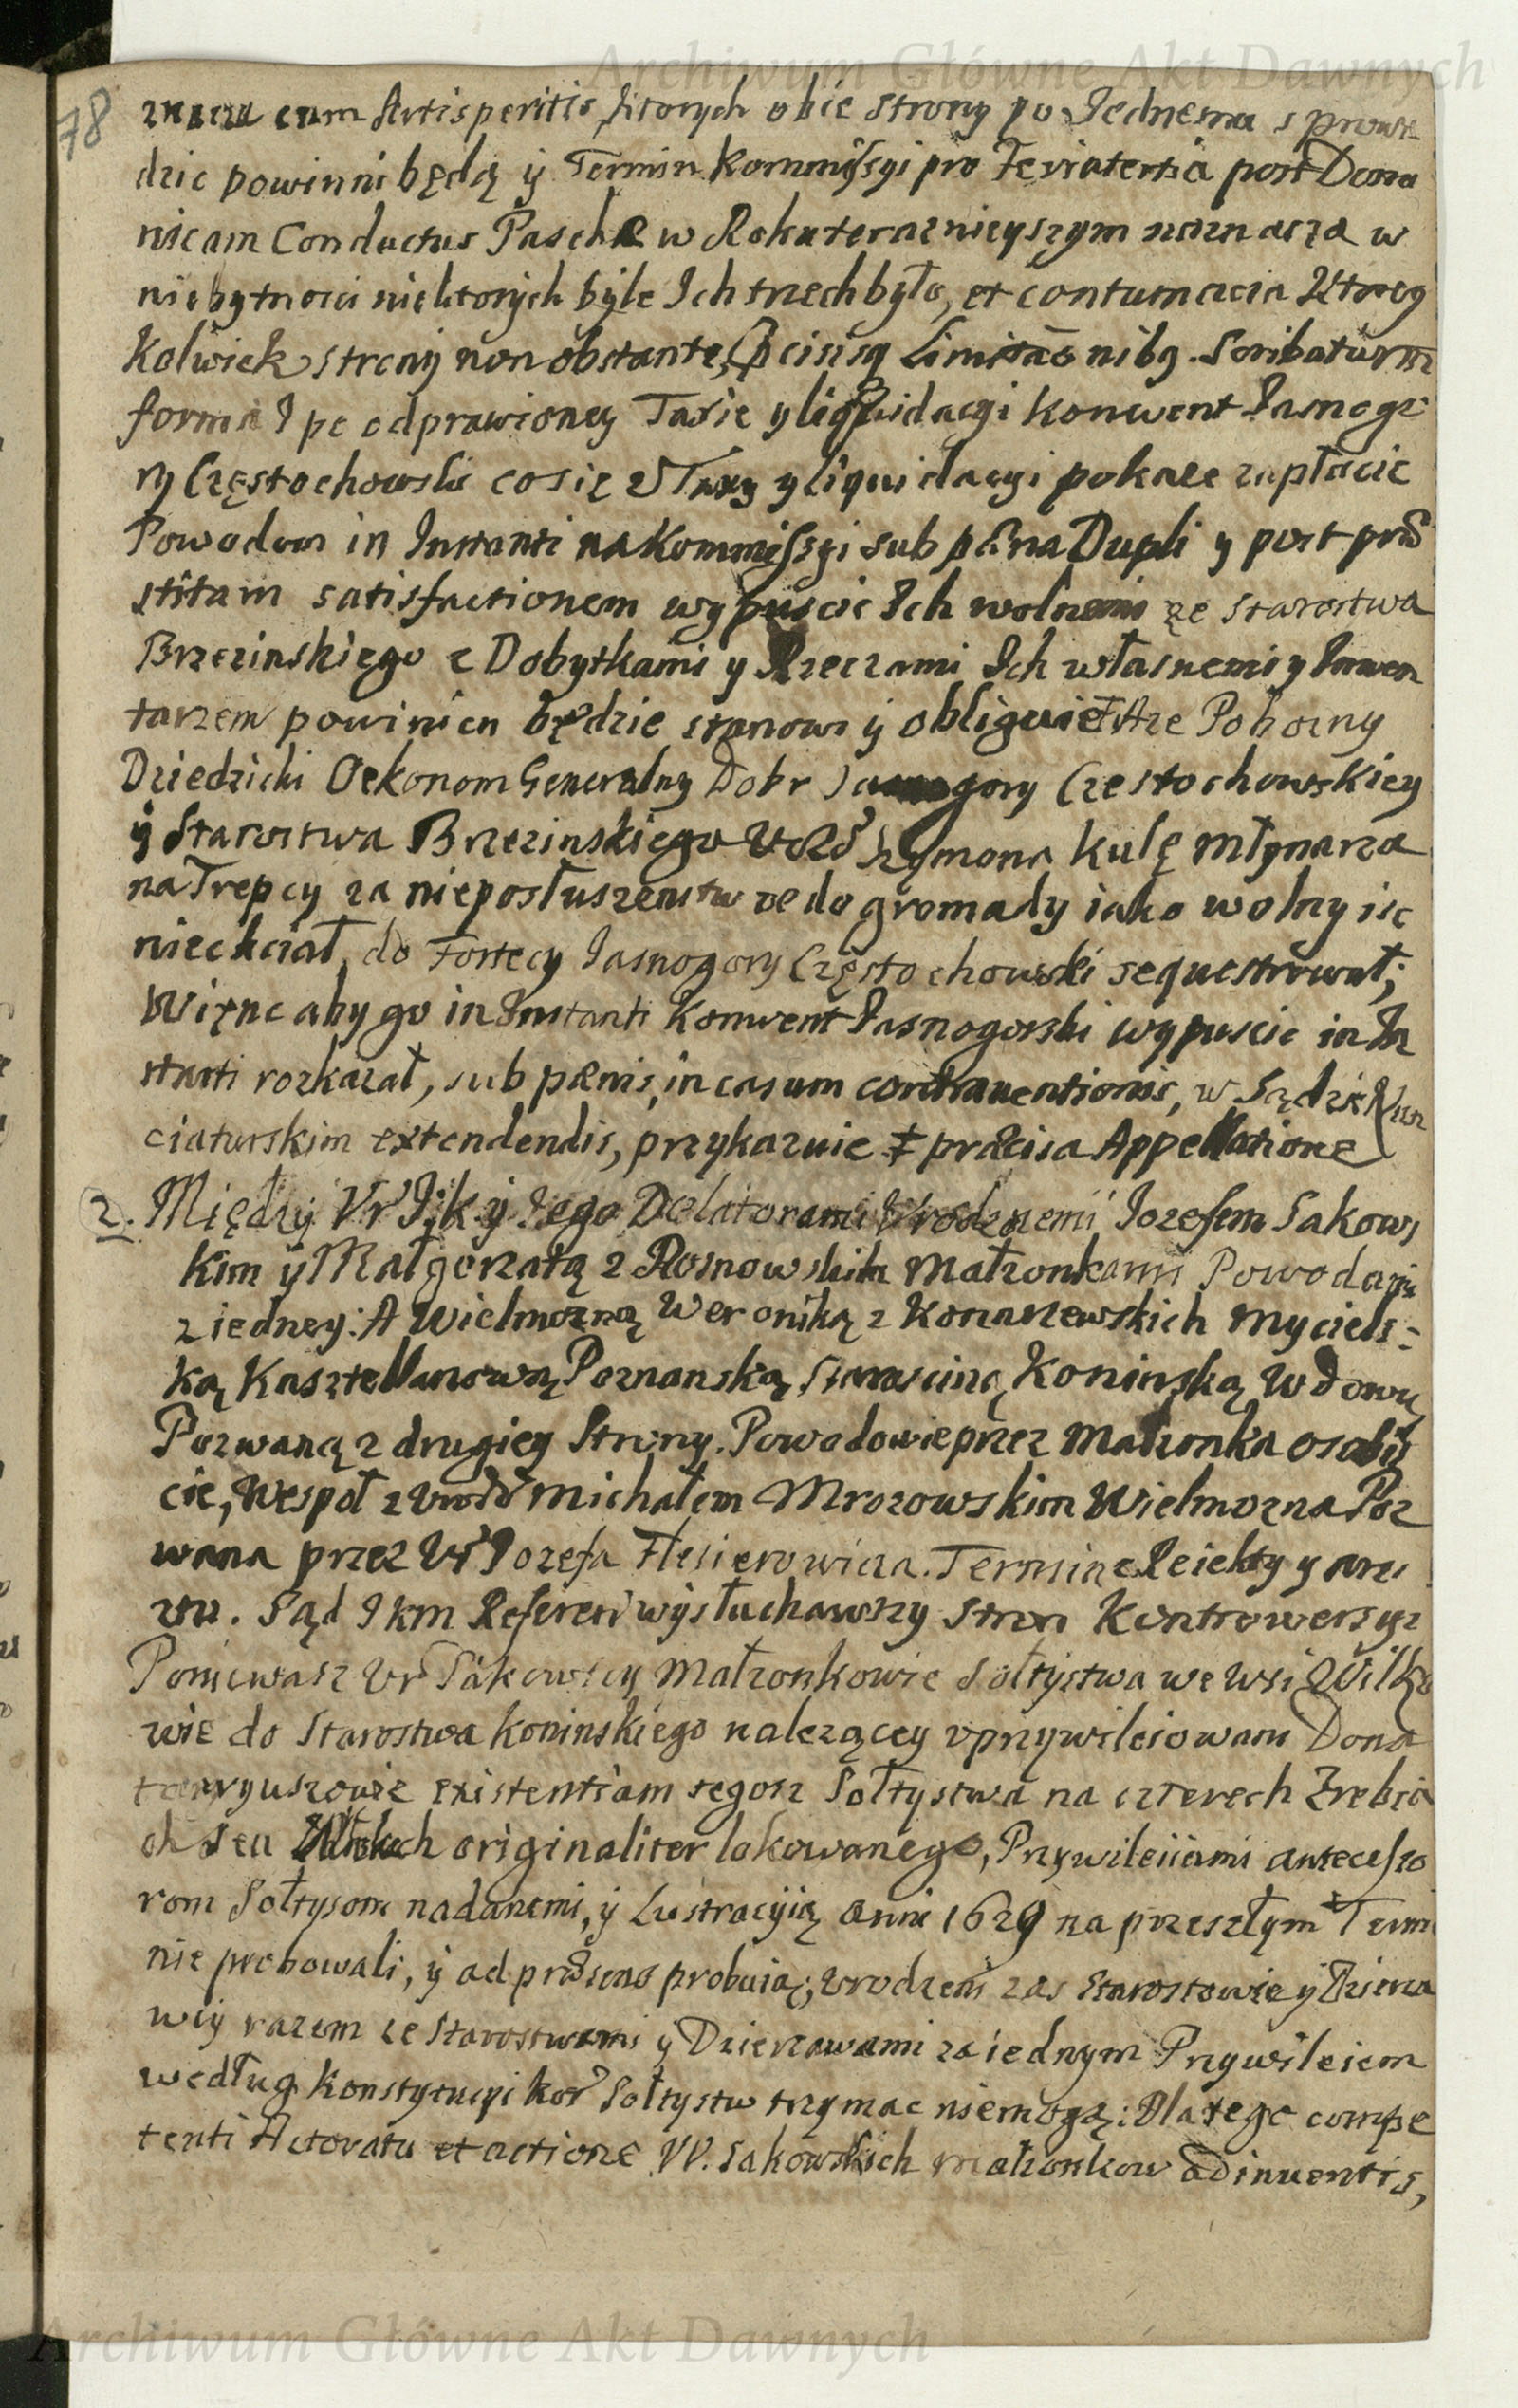 Archiwum Główne Akt Dawnych
78
znacza cum Artisperitis, ktorych obie strony po Iednemu sprowa
dzic powinni będą y Termin Kommissyi pro Feria tertia post Domi
nicam Conductus Paschæ w Roku teraznieyszym naznacza w
niebytnosci niektorych byle Ich trzech było, et contumacia Ktorey
Kolwiek strony non obstante, Præcisisq Limitaõnibq. Scribatur in
forma I po odprawioney Taxie y liquidacyi Konwent Iasnogo
ry Częstochowski co się z Taxy y liquidacyi pokaze zapłacic
Powodom in Instanti na Kommissyi sub pœna Dupli y post præ
stitam satisfactionem wypuscic Ich wolnemi ze Starostwa
Brzezinskiego z Dobytkami y Rzeczami Ich własnemi y Inwen
tarzem powinien będzie stanowi y obliguie A ze Pobozny
Dziedzicki Oekonom Generalny Dobr Jasnogory Czestochowskiey
y Starostwa Brzezinskiego Szymona Kulę Młynarza
na Trepcy za nieposłuszenstwo ze do gromady iako wolny isc
niechciał, do Fortecy Iasnogory Częstochowski sequestrował;
Więnc aby go in Instanti Konwent Iasnogorski wypuscic in In
stanti rozkazał, sub pœnis, in casum contrauentionis, w Sądzie Nun
ciaturskim extendendis, przykazuie præcisa Appellatione
2. Między Vr Ijk y Iego Delatorami Vrodzonemi Iozefem Sakows
kim y Małgorzatą z Rosnowskich Małzonkami Powodami
z iedney: A Wielmozną Weroniką z Konarzewskich Myciels:
ką Kasztellanową Poznanską Starosciną Koninską Wdową
Pozwaną z drugiey Strony. Powodowie przez Małzonka osobis
cie, Wespoł z Vrodz Michałem Mrozowskim Wielmozna Poz
wana przez Vr Iozefa Flesierowicza. Termine Reiekty y
zu. Sąd Ikm Referen wysłuchawszy stron Kontrowersyi
Poniewasz Vr Sakowscy Małzonkowie Sołtystwa we wsi Wilko
wie do Starostwa Koninskiego nalezącey vprzywileiowani Dona
taryuszowie existentiam tegosz Sołtystwa na czterech Zrebia
ch seu originaliter lokowanego, Przywileiiami antecesso
rom Sołtysom nadanemi, y Lustracyią Anni 1629 na przeszłym Termi
nie probowali, y ad præsens probuią; vrodzeni zas Starostowie y Dzierza
wcy razem ze Starostwami y Dzierzawami za iednym Przywileiem
według Konstytucyi kor Sołtystw trzymac niemogą: Dlatego compe
tenti Actoratu et actione VV. Sakowskich małzonkow adinuentis,
Archiwum Główne Akt Dawnych